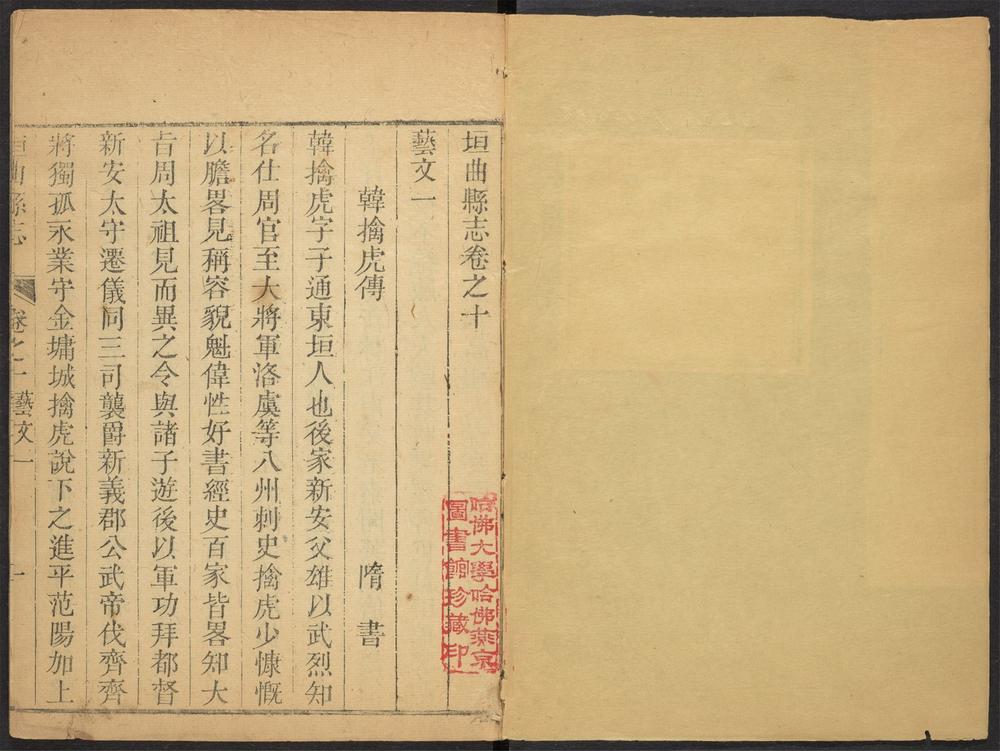 垣曲縣志卷之十
藝文一
韓擒虎傳 隋書
韓擒虎字子通東垣人也後家新安父雄以武烈知
名仕周官至大將軍洛虞等八州刺史擒虎少慷慨
以膽畧見稱容貌魁偉性好書經史百家皆畧知大
旨周太祖見而異之令與諸子遊後以軍功拜都督
新安太守遷儀同三司襲爵新義郡公武帝伐齊齊
將獨孤永業守金墉城擒虎說下之進平范陽加上
垣曲縣志 卷之十 藝文一 一
哈佛大學哈佛燕京
圖書館珍藏印